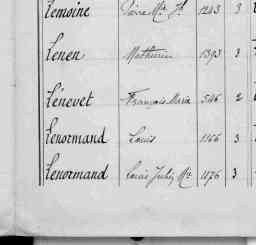 Lemoine Pierre Mie Jh 1243 3
Lenen Mathurin 1393 3
Lénevet François Marie 546 2
Lenormand Louis 1166 3
Lenormand Louis Julien Mie 1176 3